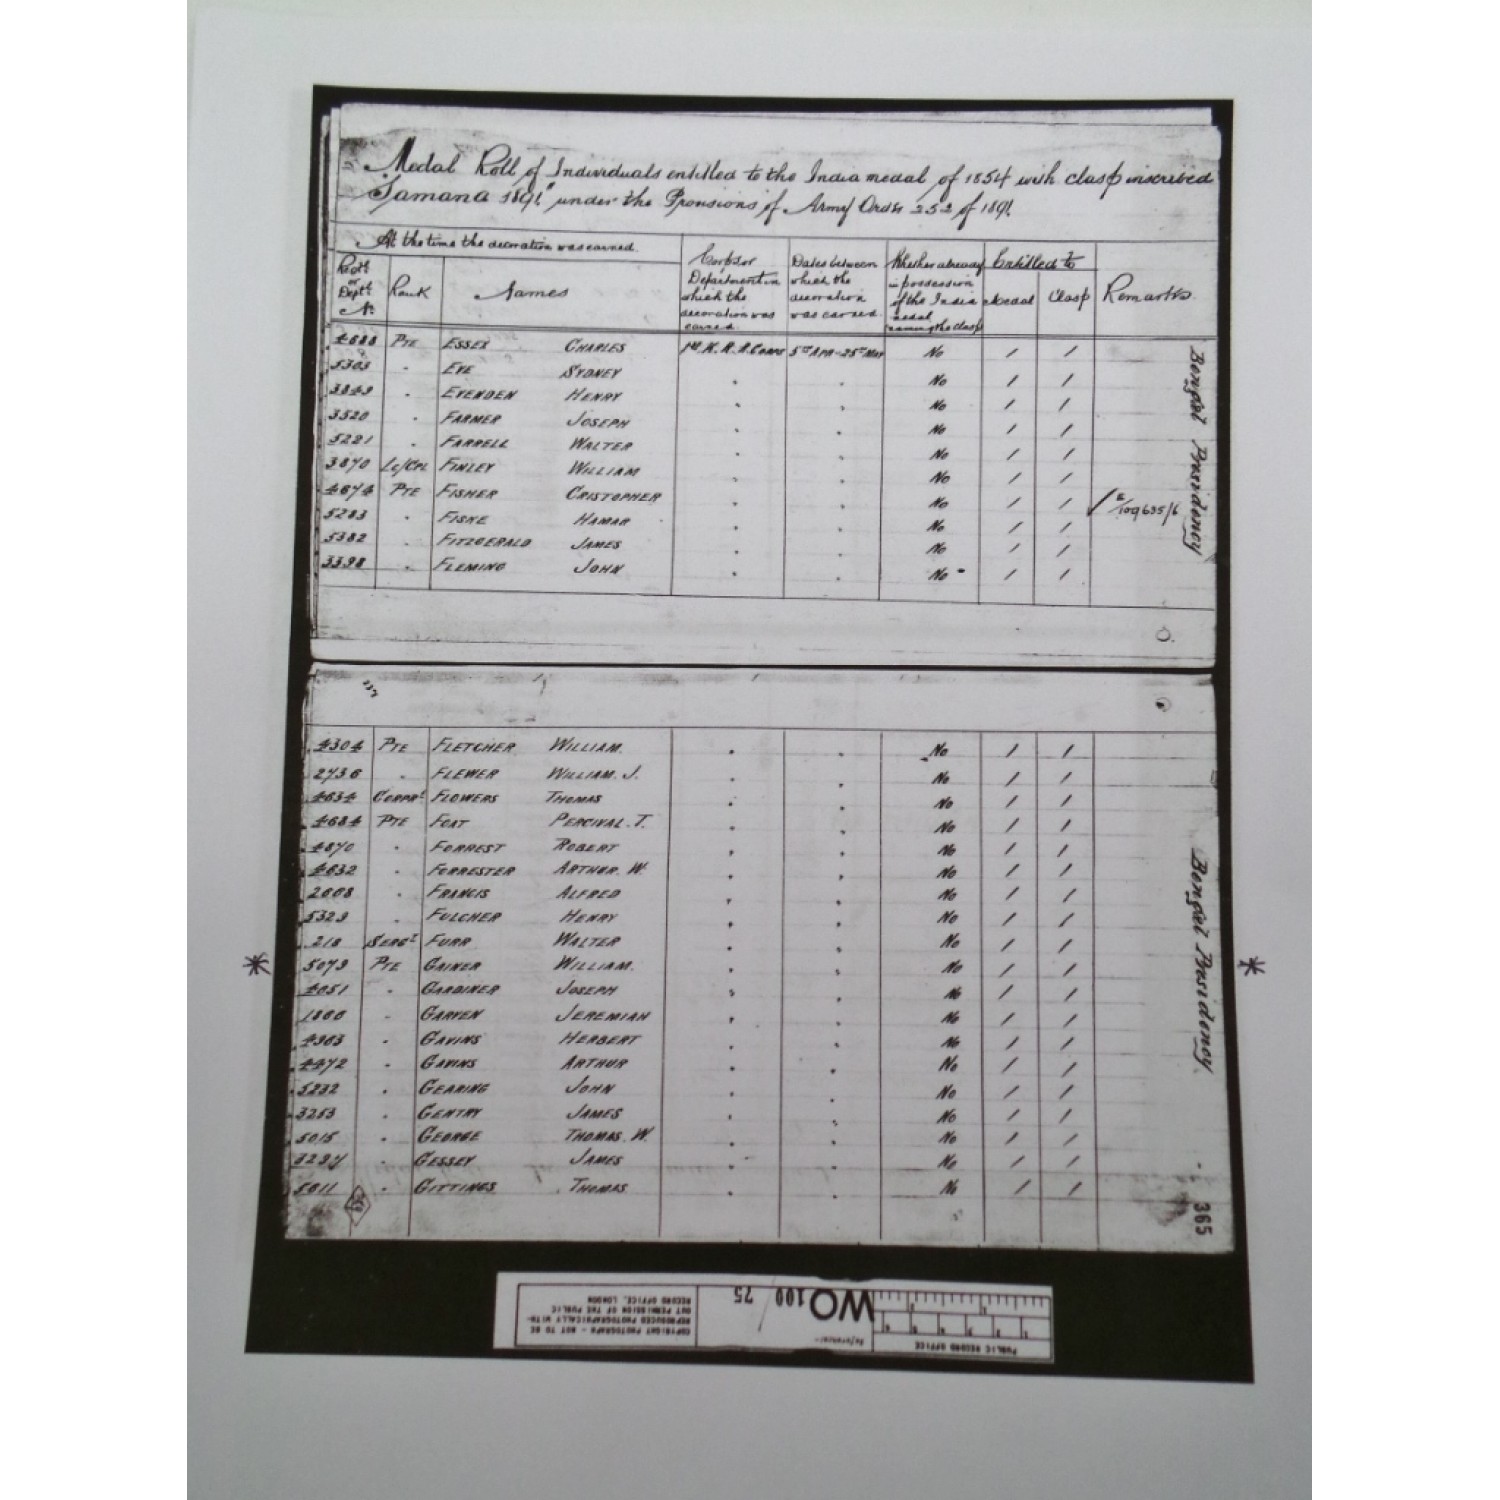 Medal Roll of Individuals entitled to the India medal of 1854 with clasp inscribed
"Samana 1891" under the Provisions of Army Order 252 of 1891
At the time the decoration was earned
Regtl or Deptl No. Rank Names Corps or Department in which the decoration was earned Dates between which the decoration was earned Whether already in possession of the India medal the clasp Entitled to Medal Clasp Remarks
4688 Pte ESSEX CHARLES 1st K. R. R. Corps 5th APR - 25th MAY No / /
5303 " EVE SYDNEY " " No / /
3849 " EVENDEN HENRY " " No / /
3520 " FARMER JOSEPH " " No / /
5221 " FARRELL WALTER " " No / /
3870 Lc/Cpl FINLEY WILLIAM " " No / /
4674 PTE FISHER CRISTOPHER " " No / / ✓ E/109635/6
5283 " FISKE HAMAR " " No / /
5382 " FITZGERALD JAMES " " No / /
3398 " FLEMING JOHN " " No / /
Bengal Presidency
4304 PTE FLETCHER WILLIAM. " " No / /
2736 " FLEWER WILLIAM. J. " " No / /
4634 Corprl FLOWERS THOMAS " " No / /
4684 PTE FOAT PERCIVAL. T. " " No / /
4870 " FORREST ROBERT " " No / /
4632 " FORRESTER ARTHUR. W. " " No / /
2008 " FRANCIS ALFRED " " No / /
5323 " FULCHER HENRY " " No / /
218 SERGT FURR WALTER " " No / /
* 5073 PTE GAINER WILLIAM. " " No / / *
4051 " GARDINER JOSEPH " " No / /
1800 " GARVEN JEREMIAH " " No / /
4363 " GAVINS HERBERT " " No / /
4472 " GAVINS ARTHUR " " No / /
5232 " GEARING JOHN " " No / /
3253 " GENTRY JAMES " " No / /
5015 " GEORGE THOMAS. W. " " No / /
3237 " GESSEY JAMES " " No / /
5611 " GITTINGS THOMAS " " No / /
Bengal Presidency
365
PUBLIC RECORD OFFICE
1 2 3 4 5 6
1 2
Reference:-
WO 100/75
COPYRIGHT PHOTOGRAPH - NOT TO BE
REPRODUCED PHOTOGRAPHICALLY WITH-
OUT PERMISSION OF THE PUBLIC
RECORD OFFICE, LONDON